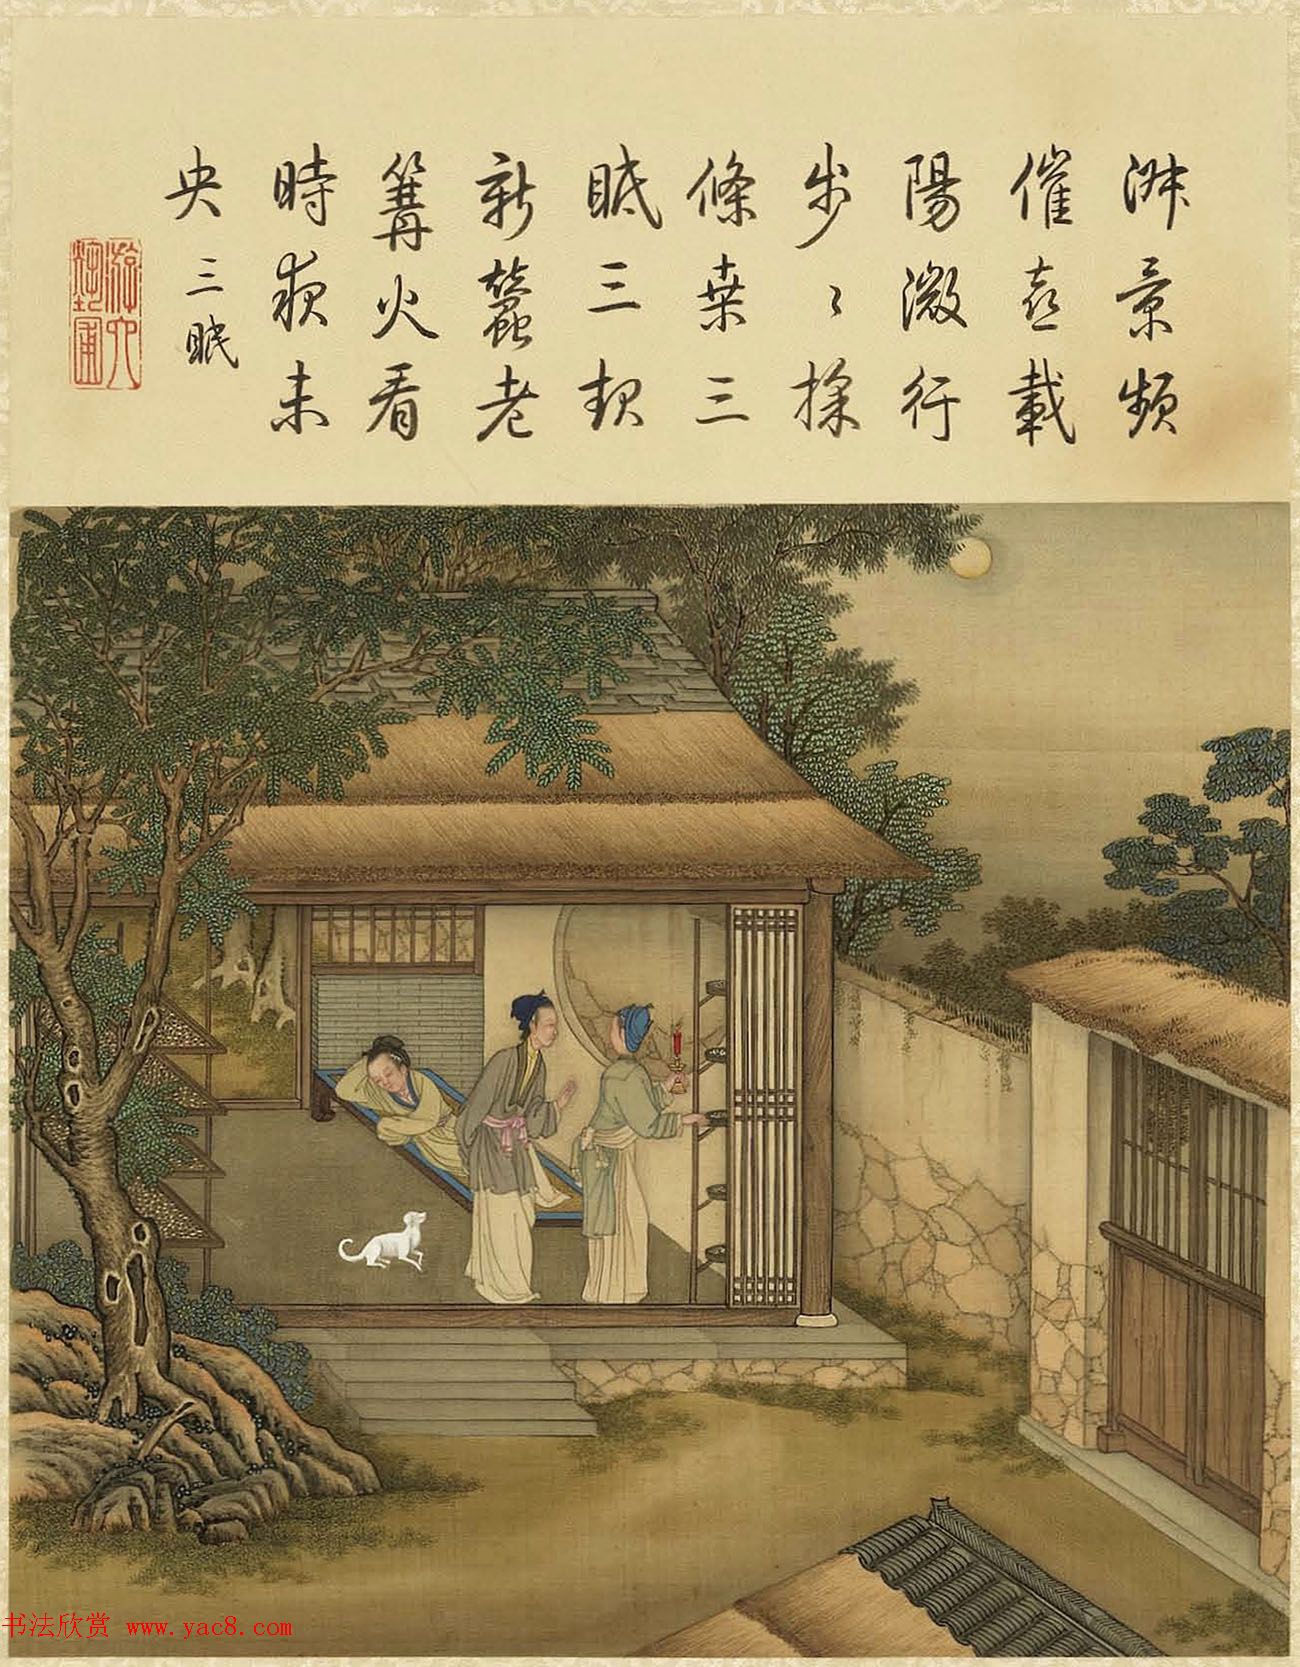 淑景頻
催喜載
陽微行
步〻採
條桑三
眠三起
新蠶老
篝火看
時夜未
央 三眠
游六
藝圃
书法欣赏 www.yac8.com